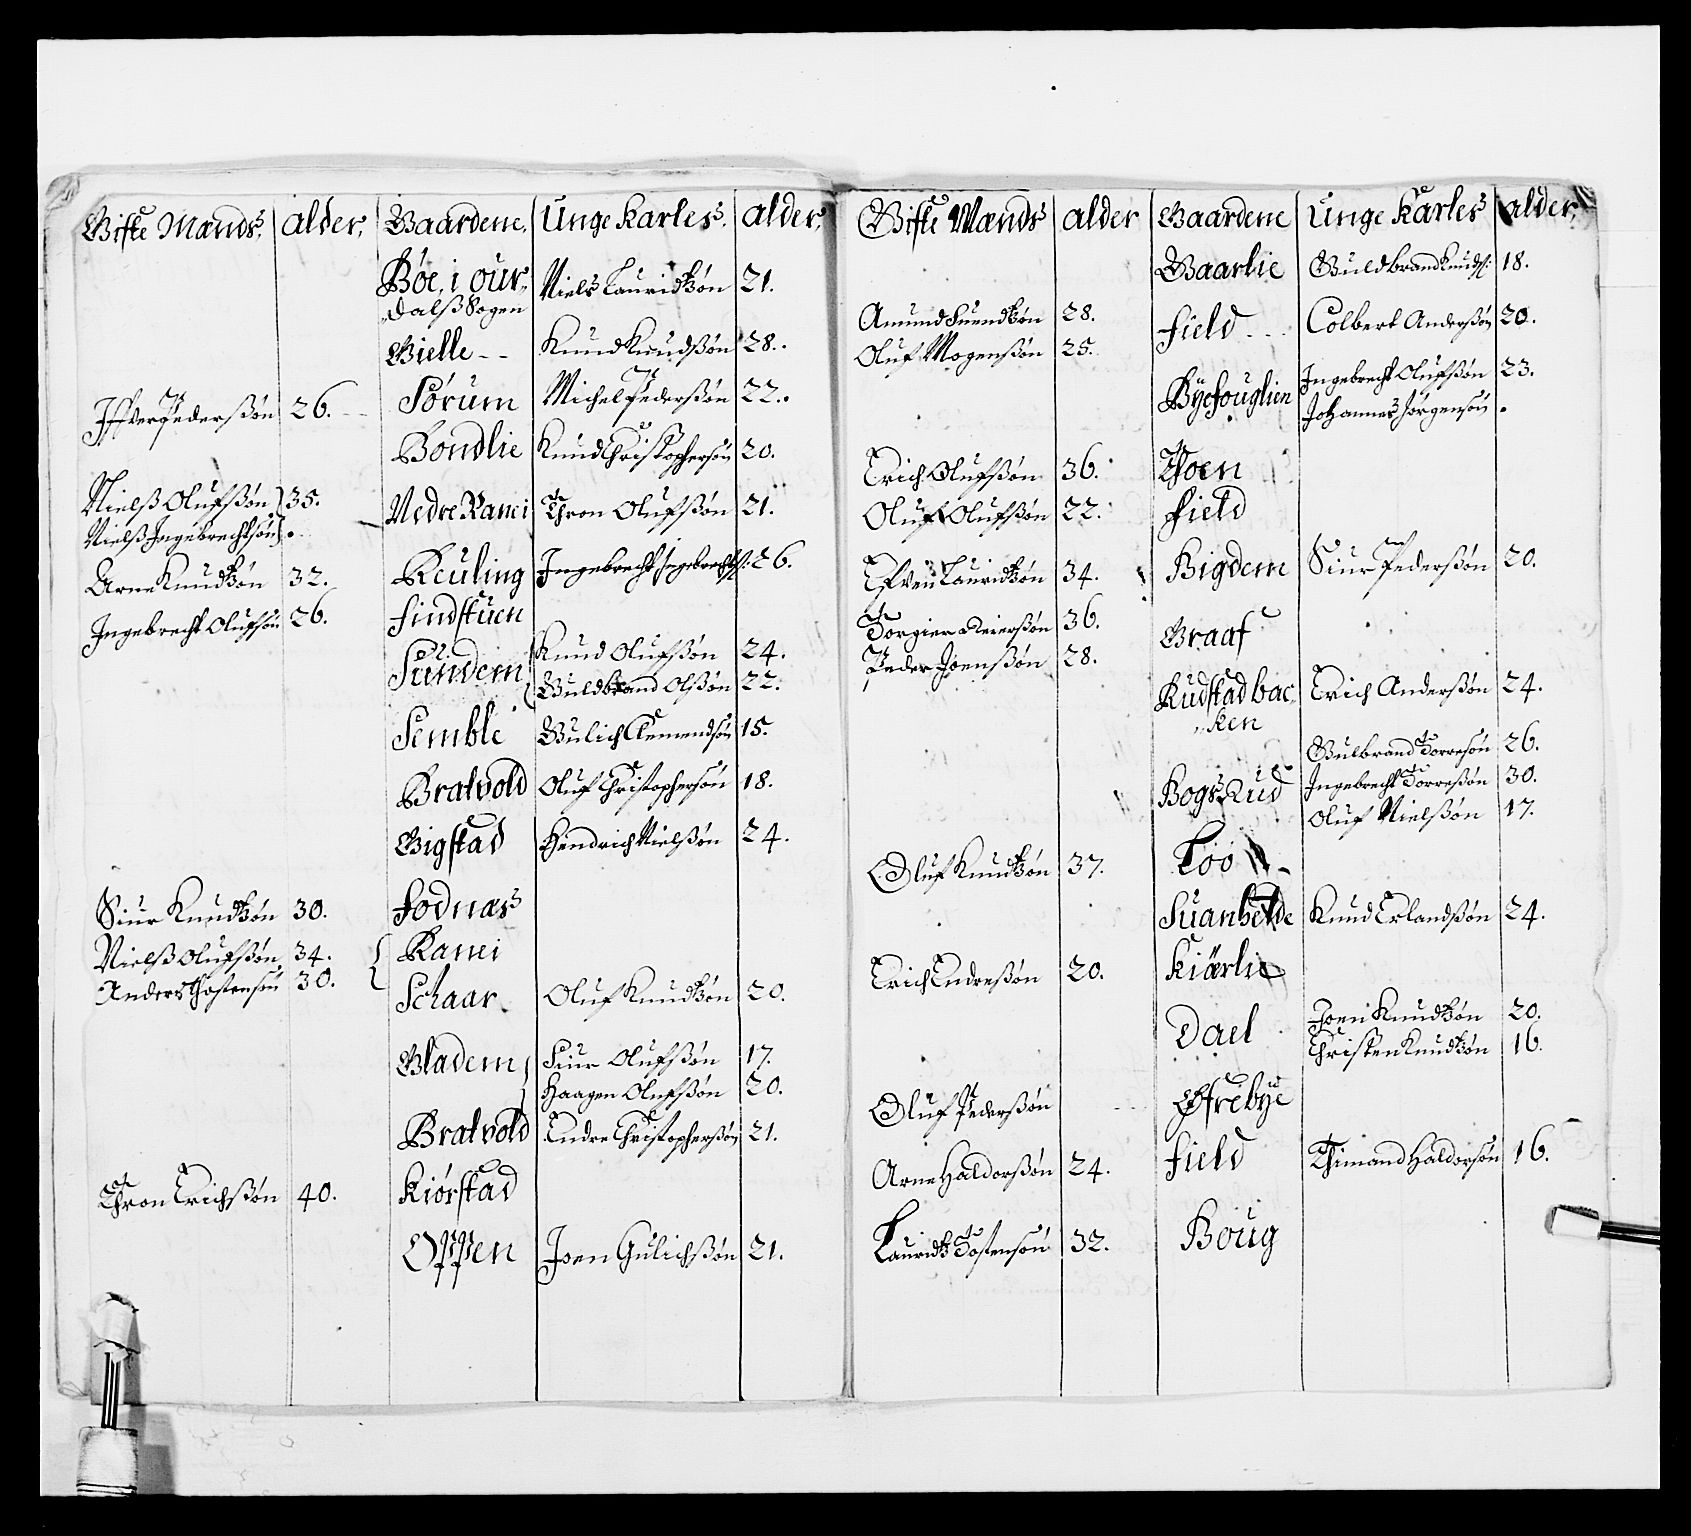 Gifte Mænds. alder. Gaardene. Unge Karles. alder.
Bøe, i our„ Niels Lauridtzøn 21.
„dalß Sogen
Gielle - - Knud Knudßøn 28.
Iffver Pederßøn 26. Sørum Michel Pederßøn 22.
Bondlie Knud Christophersøn 20.
Nielß Olufsøn 35. Nedre Ranei Thron Olufsøn 21.
Nielß Ingebrechtsøn
Arne Knudtzøn 32. Reuling Ingebrecht Ingebrechts: 26.
Ingebrecht Olufsøn 26. Findstuen
Sundem Knud Olufsøn 24.
Guldbrand Olsøn 22.
Semble Gulich Clemendsøn 15.
Bratvold Oluf Christophersøn 18.
Gigstad Hendrich Nielßøn 24.
Siur Knudtzøn 30. Fodnæs
Nielß Olufsøn 34. Ranei
Anders Thostensøn 30. Schaar Oluf Knudtzøn 20.
Gladem Siur Olufsøn 17.
Haagen Olufsøn 20.
Bratvold Endre Christophersøn 21.
Thron Erichsøn 40. Kiørstad
Oppen Joen Gulichßøn 21.
Gifte Mænds alder Gaardene Unge Karles alder.
Gaarlie Guldbrand Knuds: 18.
Amund Suendtzøn 28. Field - - Colbert Anderßøn 20.
Oluf Mogensøn 25.
Byefouglien Ingebrecht Olufsøn 23.
Johannes Jørgensøn
Erich Olufsøn 36. Thoen
Oluf Olufsøn 22. Field
Efven Lauridtzøn 34. Bigdem Siur Pederßøn 20.
Torgier Reierßøn 36. Graaf
Peder Joenßøn 28.
Rudstadbac„ Erich Anderßøn 24.
„ken
Gulbrand Torresøn 26.
Bogs Rud Ingebrecht Torresøn 30.
Oluf Nielßøn 17.
Oluf Knudtzøn 37. Loo
Suanhelde Knud Erlandsøn 24.
Erich Endresøn 20. Kiærlie
Dael Joen Knudtzøn 20.
Christen Knudtzøn 16.
Oluf Pederßøn Øfrebye
Arne Haldorßøn 24. Field Thimand Haldorsøn 16.
Lauridtz Tostensøn 32. Boug